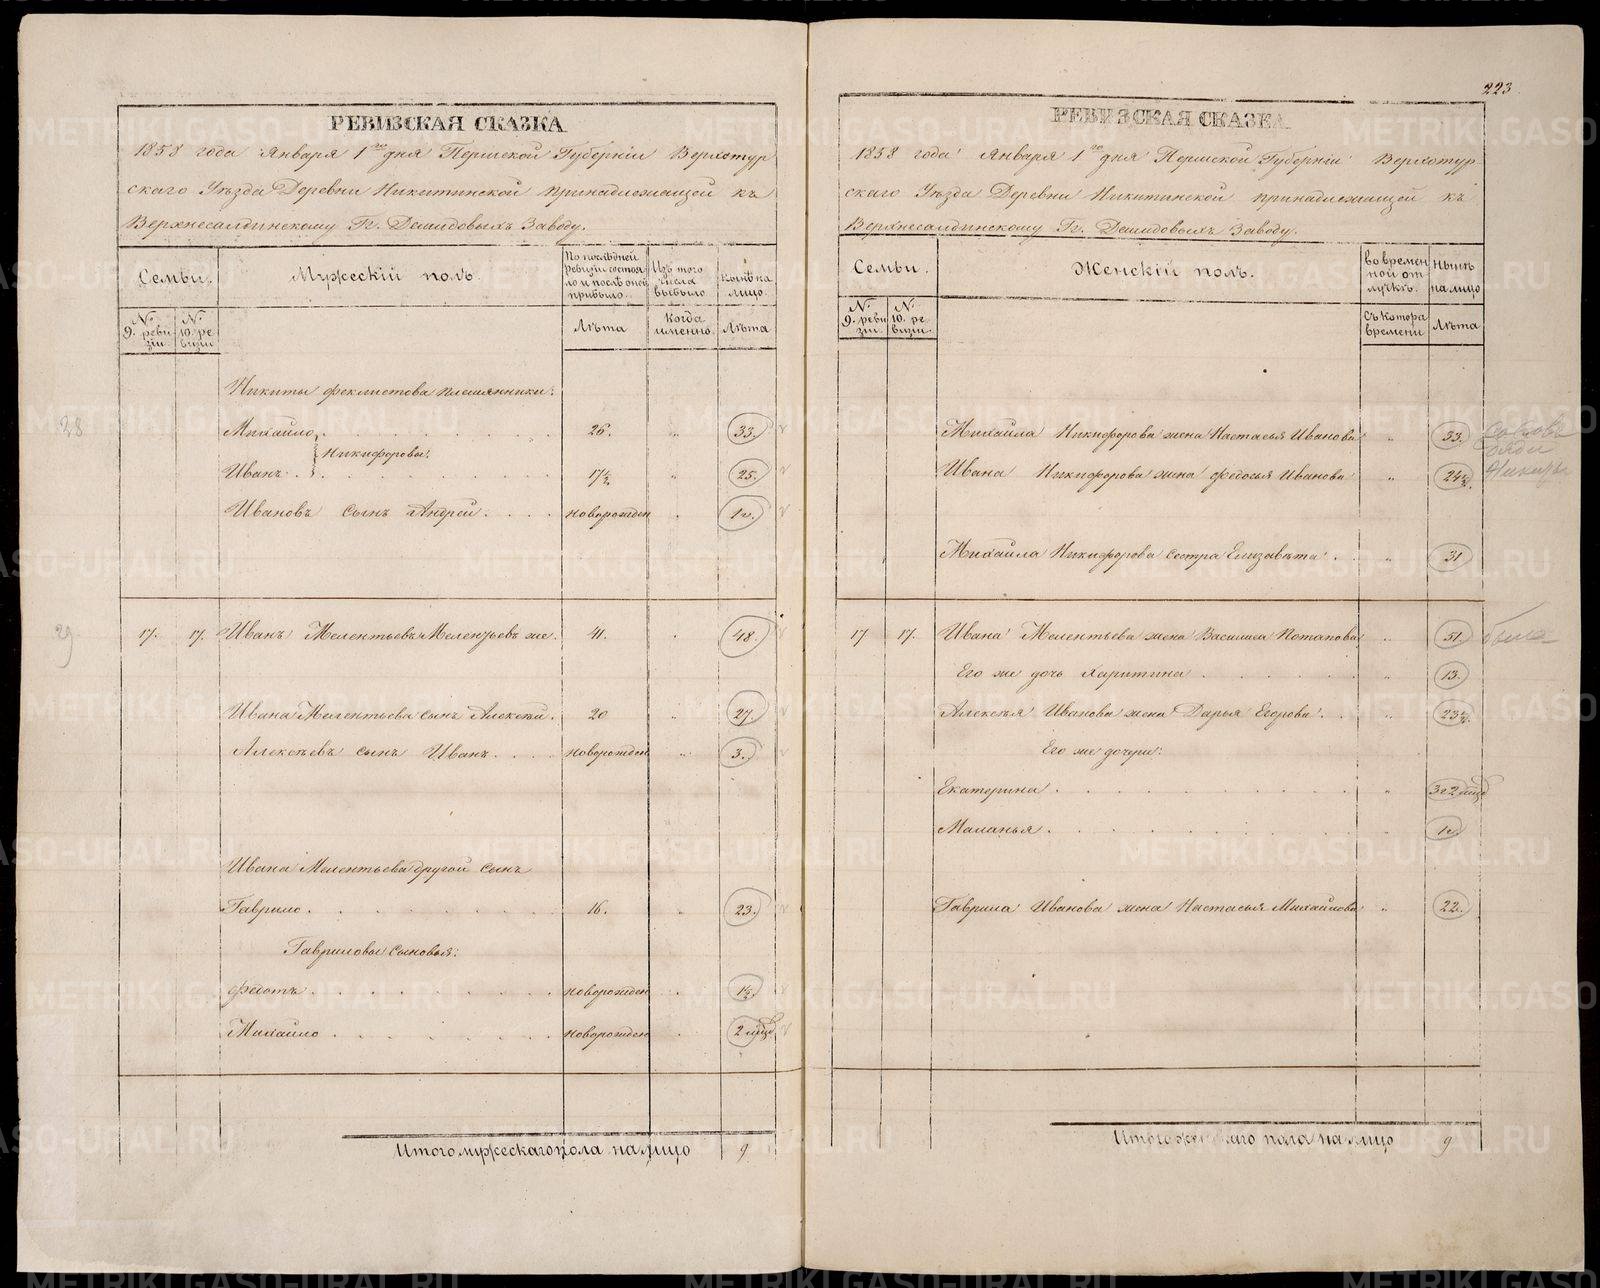 РЕВИЗСКАЯ СКАЗКА
1858 года Января 1го дня Пермской Губерніи Верхотур
скаго Уѣзда Деревни Никитинской принадлежащей къ
Верхнесалдинскому Гг. Демидовыхъ Заводу.
Семьи.
Мужескій полъ.
По послѣдней ревизіи состояло и послѣ оной прибыло.
Изъ того числа выбыло
Нынѣ на лицо.
№ 9. ревизіи
№ 10. ревизіи
Лѣта
Когда именно.
Лѣта
Никиты Феклистова племянники:
28 Михайло 26. 33.
Никифоровы.
Иванъ 17½ 25.
Ивановъ сынъ Андрей новорожден 1г.
29 17. 17. Иванъ Мелентьевъ Мелентьевъ же. 41. 48.
Ивана Мелентьева сынъ Алексѣй. 20 27.
Алексѣевъ сынъ Иванъ новорожден 3.
Ивана Мелентьева другой сынъ
Гаврило 16. 23.
Гавриловы сыновья:
Федотъ новорожден 1½.
Михайло новорожден 2 мѣс.
Итого мужескаго пола на лицо 9
223
РЕВИЗСКАЯ СКАЗКА
1858 года Января 1го дня Пермской Губерніи Верхотур
скаго Уѣзда Деревни Никитинской принадлежащей къ
Верхнесалдинскому Гг. Демидовыхъ Заводу.
Семьи.
Женскій полъ.
во временной отлучкѣ.
Нынѣ на лицо
№ 9. ревизіи
№ 10. ревизіи.
Съ котора времени
Лѣта
Михайла Никифорова жена Настасья Иванова 33.
Ивана Никифорова жена Федосья Иванова 24½.
Михайла Никифорова сестра Елизавѣта 31
17 17. Ивана Мелентьева жена Василиса Потапова 51.
Его же дочь Харитина 13.
Алексѣя Иванова жена Дарья Егорова 23½.
Его же дочери:
Екатерина 3г 2 мѣс
Маланья 1г.
Гаврила Иванова жена Настасья Михайлова 22.
Итого женскаго пола на лицо 9
METRIKI.GASO-URAL.RU